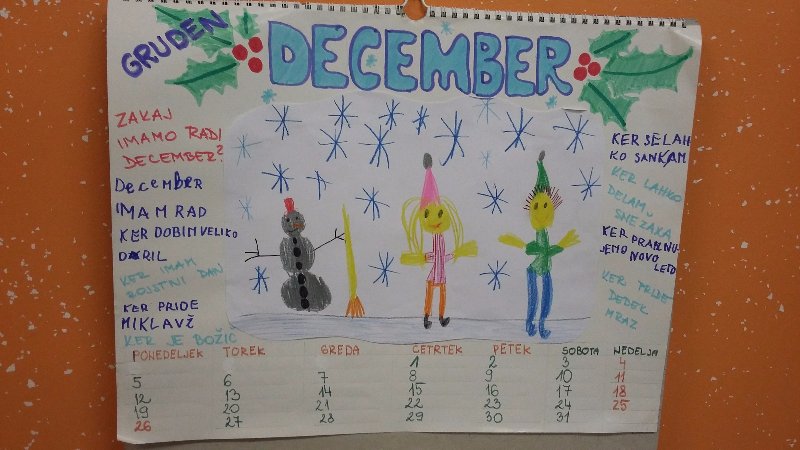 GRUDEN
DECEMBER
ZAKAJ
IMAMO RADI
DECEMBER?
DECEMBER
IMAM RAD
KER DOBIM VELIKO
DARIL
KER IMAM
ROJSTNI DAN
KER PRIDE
MIKLAVŽ
KER JE BOŽIČ
KER SE LAH
KO SANKAM
KER LAHKO
DELAM
SNEŽAKA
KER PRAZNU-
JEMO NOVO
LETO
KER PRIDE
DEDEK
MRAZ
PONEDELJEK TOREK SREDA ČETRTEK PETEK SOBOTA NEDELJA
1 2 3 4
5 6 7 8 9 10 11
12 13 14 15 16 17 18
19 20 21 22 23 24 25
26 27 28 29 30 31